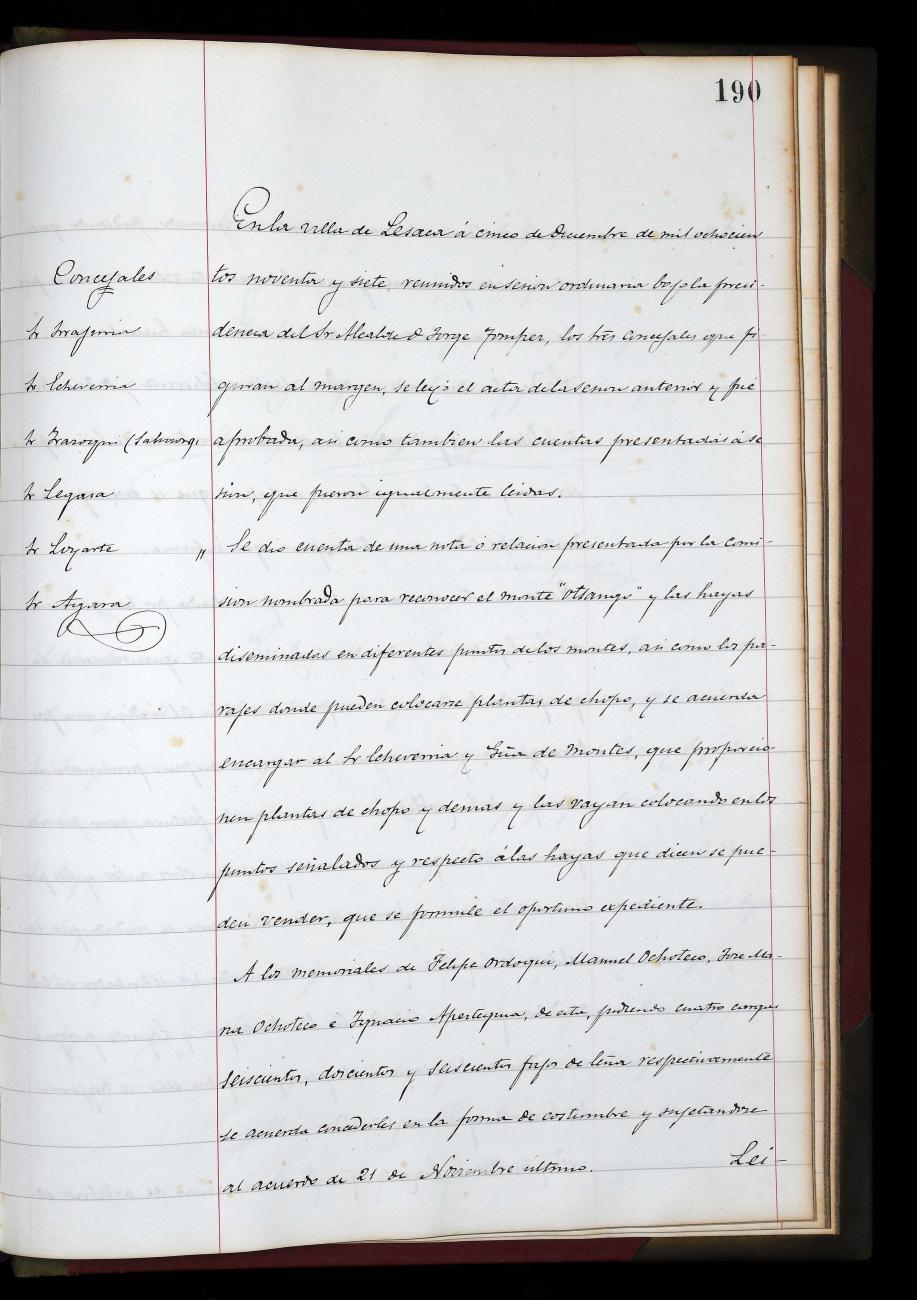 190
En la villa de Lesaca á cinco de Diciembre de mil ochocien
tos noventa y siete, reunidos en sesion ordinaria bajo la presi-
dencia del Sr Alcalde D Jorge Tomper, los tres Concejales que fi-
guran al margen, se leyó el acta de la sesion anterior y fué
aprobada, asi como tambien las cuentas presentadas á se
sion, que fueron igualmente leidas.
Concejales
Sr
Sr Echeverria
Sr
Sr Legasa
Sr Loyarte
Sr Agara
" Se dió cuenta de una nota ó relacion presentada por la comi-
sion nombrada para reconocer el monte "Otsango" y las hayas
diseminadas en diferentes puntos de los montes, asi como los pa-
rajes donde pueden colocarse plantas de chopo, y se acuerda
encargar al Sr Echeverria y Guia de Montes, que proporcio-
nen plantas de chopo y demas y las vayan colocando en los
puntos señalados y respecto á las hayas que dicen se pue-
den vender, que se formule el oportuno expediente.
A los memoriales de Felipe Ordoqui, Manuel Ochoteco, Jose Ma-
ria Ochoteco é Ignacio Apesteguia, de esta, pidiendo cuatro cargas
seiscientos, doscientos y seiscientos fajos de leña respectivamente
se acuerda concederles en la forma de costumbre y sujetandose
al acuerdo de 21 de Noviembre último.
Lei-